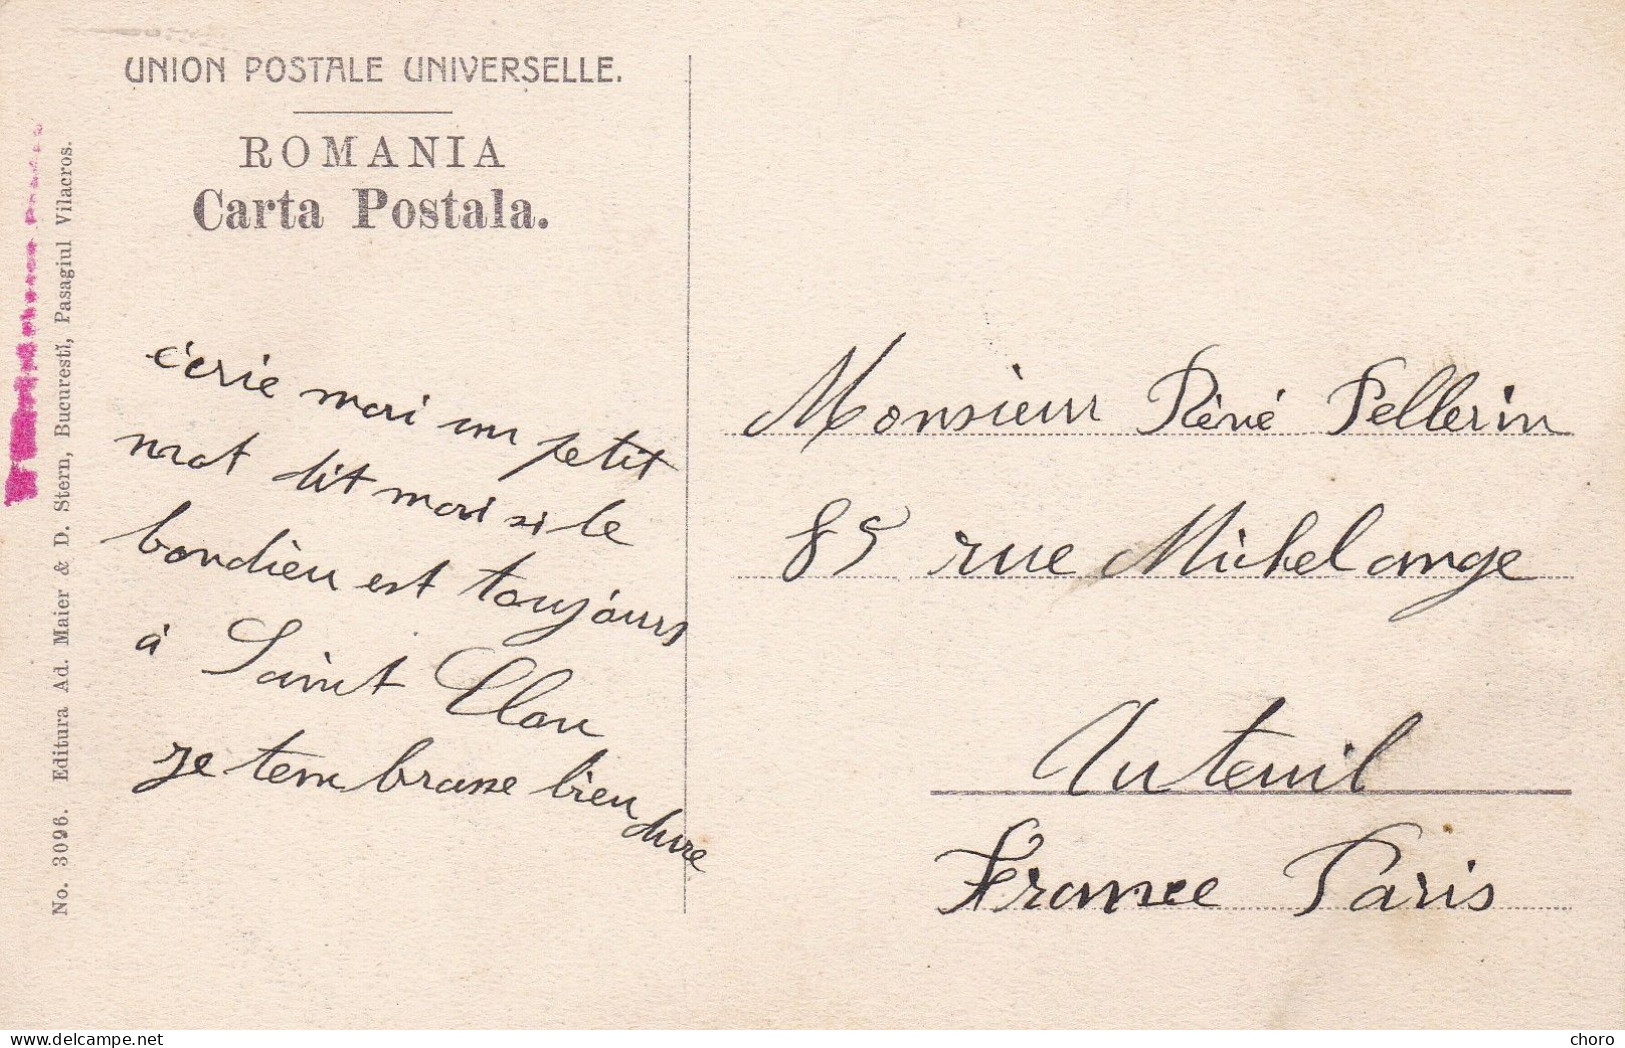 UNION POSTALE UNIVERSELLE.
ROMANIA
Carta Postala.
No. 3096. Editura Ad. Maier & D. Stern, Bucurestĭ, Pasagiul Vilacros.
c'erie moi un petit
mot dit moi si le
bondieu est toujours
à Saint Clou
je tembrasse bien
Monsieur Réné Pellerin
85 rue Michel ange
Auteuil
France Paris
choro